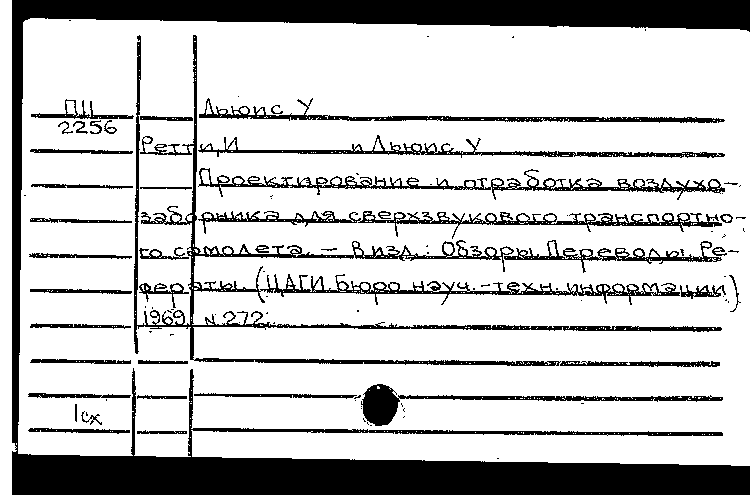 ПII Льюис, У
2256
Ретти, И и Льюис, У
Проектирование и отработка воздухо-
заборника для сверхзвукового транспортно-
го самолета. – В изд.: Обзоры. Переводы. Ре-
фераты. (ЦАГИ. Бюро науч.-техн. информации)
1969, N 272.
1сх